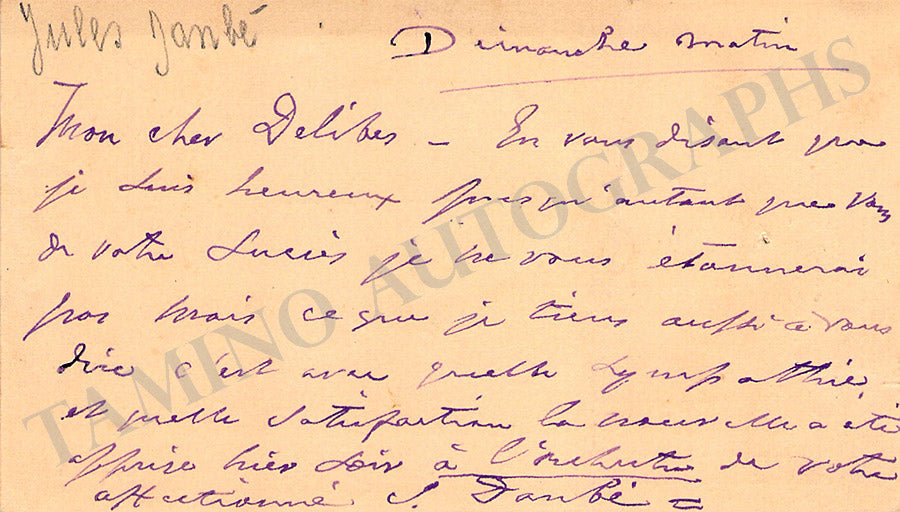 Jules Danbé
Dimanche matin
Mon cher Delibes – En vous disant que
je suis heureux presqu'autant que vous
de votre succès je ne vous étonnerai
pas mais ce que je tiens aussi à vous
dire c'est avec quelle sympathie
et quelle satisfaction la nouvelle a été
apprise hier soir à l'orchestre de votre
affectionné J. Danbé =
TAMINO AUTOGRAPHS